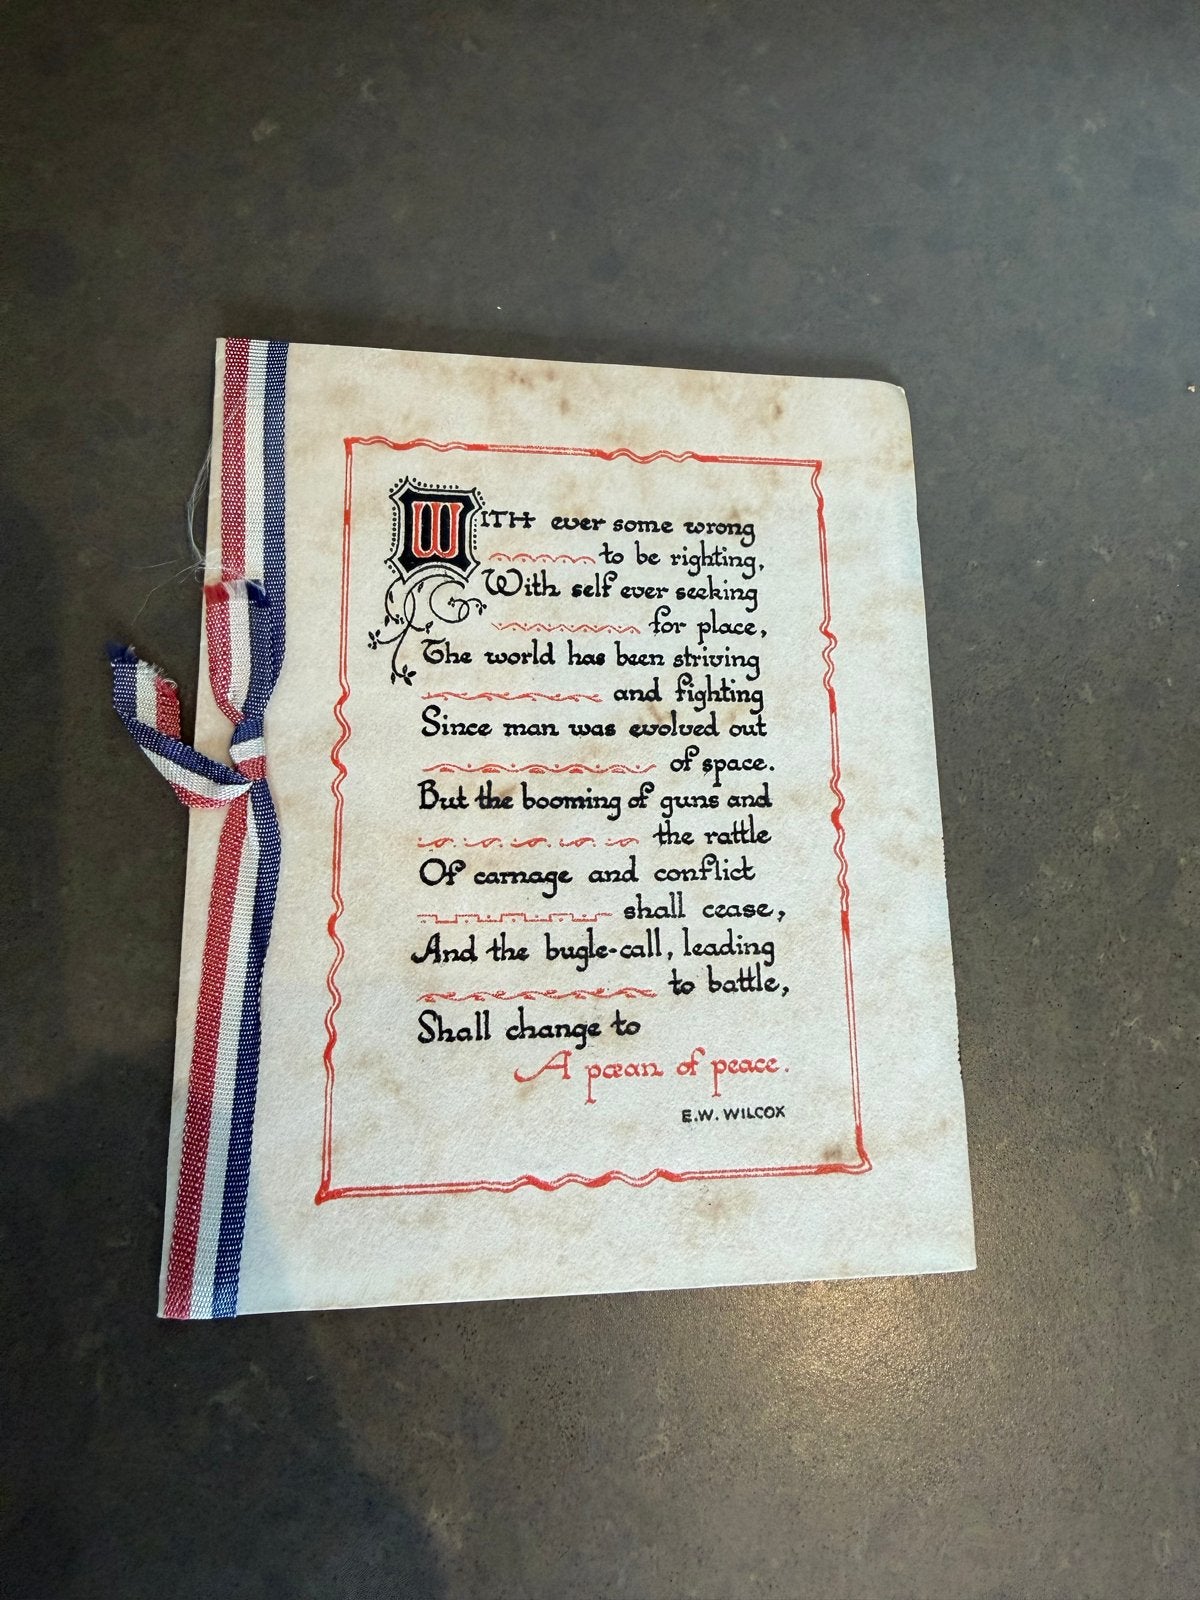 WITH ever some wrong
to be righting,
With self ever seeking
for place,
The world has been striving
and fighting
Since man was evolved out
of space.
But the booming of guns and
the rattle
Of carnage and conflict
shall cease,
And the bugle-call, leading
to battle,
Shall change to
A pæan of peace.
E.W. WILCOX